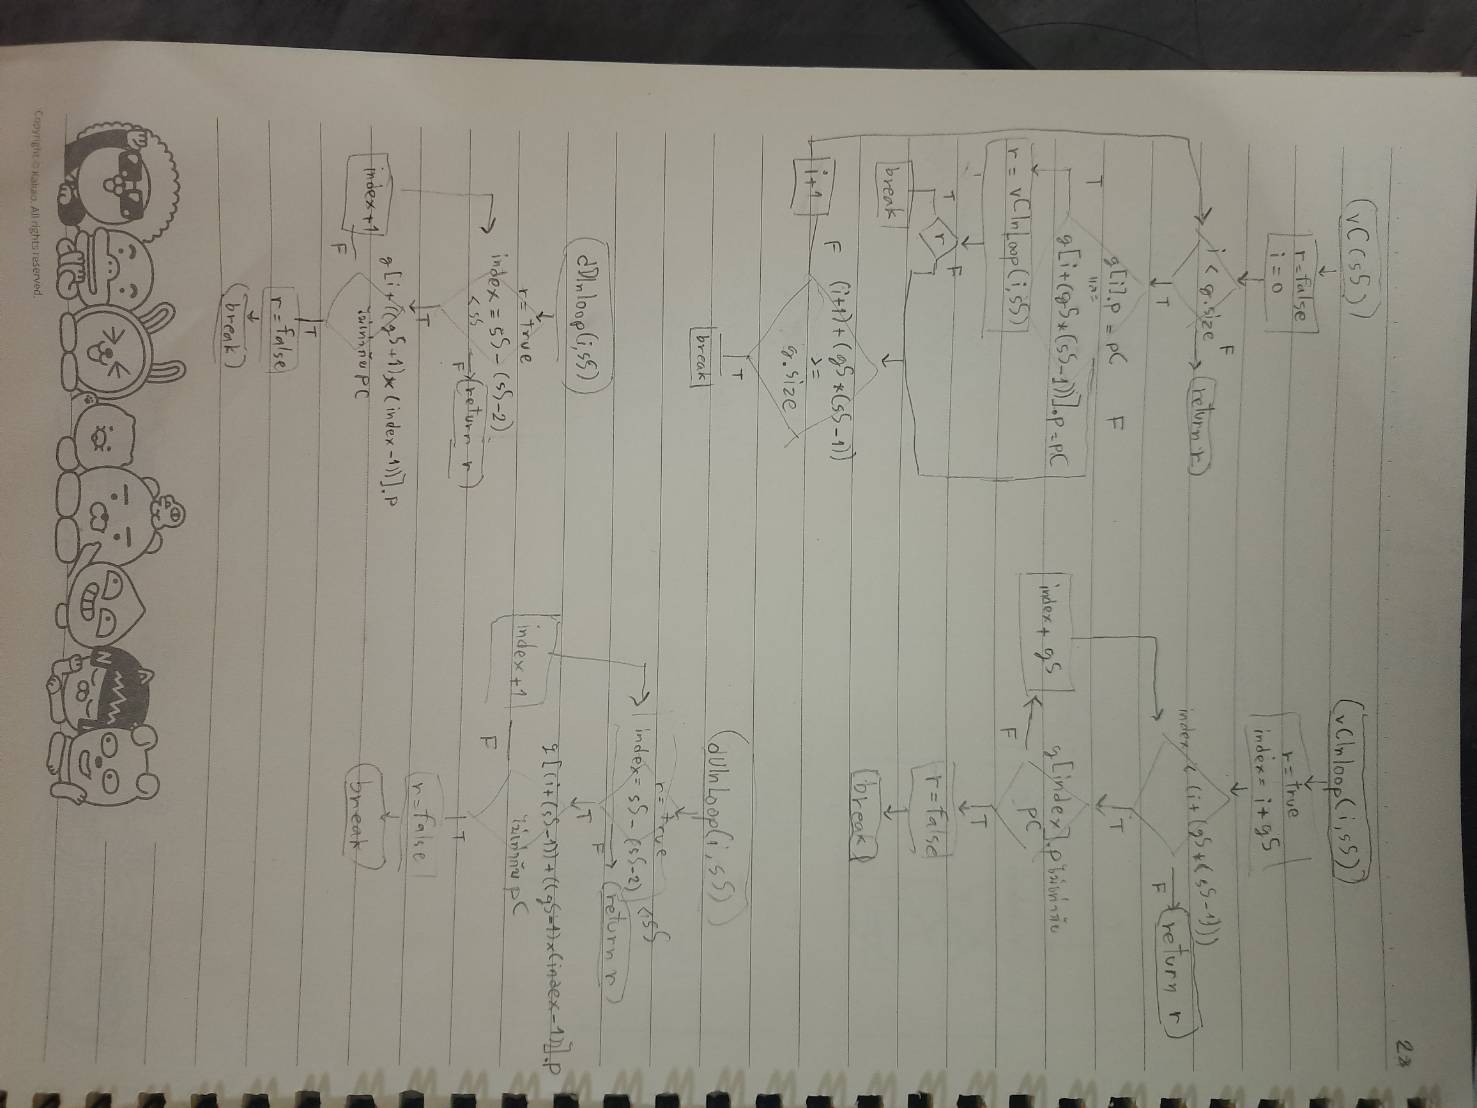 vC(sS)
r=false
i=0
i < g.size
F
return r
T
g[i].p = pC
F
และ
T
g[i+(gS*(sS-1))].p=pC
r = vCInLoop(i,sS)
T
r
F
break
(i+1)+(gS*(sS-1))
>=
g.size
F
i+1
T
break
vCInloop(i,sS)
r=true
index= i+gS
index < (i+(gS*(sS-1)))
F
return r
T
g[index].p ไม่เท่ากับ
pC
index+gS
F
T
r=false
break
dDInloop(i,sS)
r=true
index = sS-(sS-2)
<sS
F
return r
T
g[i+((gS+1)*(index-1))].p
ไม่เท่ากับ pC
index+1
F
T
r=false
break
dUInLoop(i,sS)
r=true
index= sS-(sS-2) <sS
F
return r
T
g[(i+(sS-1))+((gS-1)*(index-1))].p
ไม่เท่ากับ pC
index+1
F
T
r=false
break
Copyright © Kakao. All rights reserved.